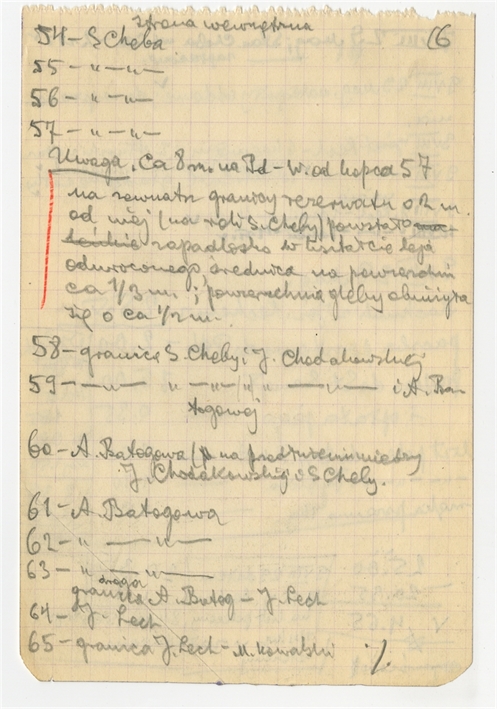 strona wewnętrzna
16
54 – S Cheba
55 – " — " —
56 – " — " —
57 – " — " —
Uwaga. Ca 8 m. na Pd – W. od kopca 57
na zewnątrz granicy rezerwatu o 2 m.
od niej (na roli S. Cheby) powstało
zapadlisko w kształcie leja
odwróconego, średnica na powierzchni
ca 1/3 m.; powierzchnia gleby obniżyła
się o ca 1/2 m.
58 – granica S. Cheby i J. Chodakowskiej
59 – — " — " — " — " " — " — i A. Ba-
togowej
60 – A. Batogowa na przedłużeniu miedzy
J. Chodakowskiej i S Cheby.
61 – A. Batogowa
62 – " — " —
63 – " — " —
droga
granica A. Batog – J. Lech
64 – J. Lech
65 – granica J. Lech – M. Kowalski ./.